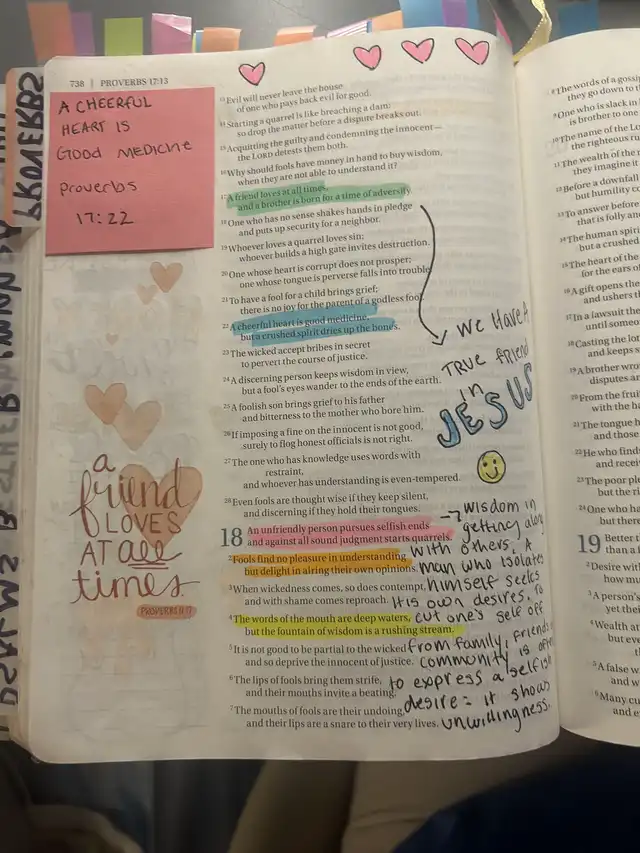 738 | PROVERBS 17:13
PROVERBS
A CHEERFUL
HEART IS
GOOD MEDICINE
Proverbs
17:22
a
friend
LOVES
AT all
times.
PROVERBS 17:17
13 Evil will never leave the house
of one who pays back evil for good.
14 Starting a quarrel is like breaching a dam;
so drop the matter before a dispute breaks out.
15 Acquitting the guilty and condemning the innocent—
the LORD detests them both.
16 Why should fools have money in hand to buy wisdom,
when they are not able to understand it?
17 A friend loves at all times,
and a brother is born for a time of adversity.
18 One who has no sense shakes hands in pledge
and puts up security for a neighbor.
19 Whoever loves a quarrel loves sin;
whoever builds a high gate invites destruction.
20 One whose heart is corrupt does not prosper;
one whose tongue is perverse falls into trouble.
21 To have a fool for a child brings grief;
there is no joy for the parent of a godless fool.
22 A cheerful heart is good medicine,
but a crushed spirit dries up the bones.
23 The wicked accept bribes in secret
to pervert the course of justice.
24 A discerning person keeps wisdom in view,
but a fool's eyes wander to the ends of the earth.
25 A foolish son brings grief to his father
and bitterness to the mother who bore him.
26 If imposing a fine on the innocent is not good,
surely to flog honest officials is not right.
27 The one who has knowledge uses words with
restraint,
and whoever has understanding is even-tempered.
28 Even fools are thought wise if they keep silent,
and discerning if they hold their tongues.
18 An unfriendly person pursues selfish ends
and against all sound judgment starts quarrels.
2 Fools find no pleasure in understanding
but delight in airing their own opinions.
3 When wickedness comes, so does contempt,
and with shame comes reproach.
4 The words of the mouth are deep waters,
but the fountain of wisdom is a rushing stream.
5 It is not good to be partial to the wicked
and so deprive the innocent of justice.
6 The lips of fools bring them strife,
and their mouths invite a beating.
7 The mouths of fools are their undoing,
and their lips are a snare to their very lives.
We HAVE A
TRUE friend
in
JESUS
wisdom in
getting along
with others. A
man who isolates
himself seeks
his own desires. To
cut one's self off
from family, friends
community is often
to express a selfish
desire = it shows
unwillingness.
8 The words of a gossip
they go down to
9 One who is slack in
is brother to one
10 The name of the
the righteous
11 The wealth of the
they imagine it
12 Before a downfall
but humility
13 To answer before
that is folly and
14 The human spirit
but a crushed
15 The heart of the
for the ears of
16 A gift opens the
and ushers
17 In a lawsuit the
until someone
18 Casting the lot
and keeps
19 A brother
disputes are
20 From the fruit
with the
21 The tongue
and those
22 He who finds
and receives
23 The poor
but the
24 One who has
but there
19 Better
than a
2 Desire
how
3 A person's
yet their
4 Wealth
but
5 A false
and
6 Many
and